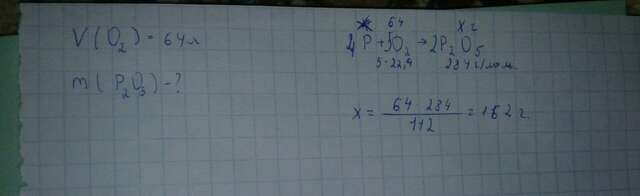 V(O₂) = 64 л
m(P₂O₅) - ?
64 x г
4P + 5O₂ → 2P₂O₅
5·22,4 284 г/моль
x = 64·284 / 112 = 162 г